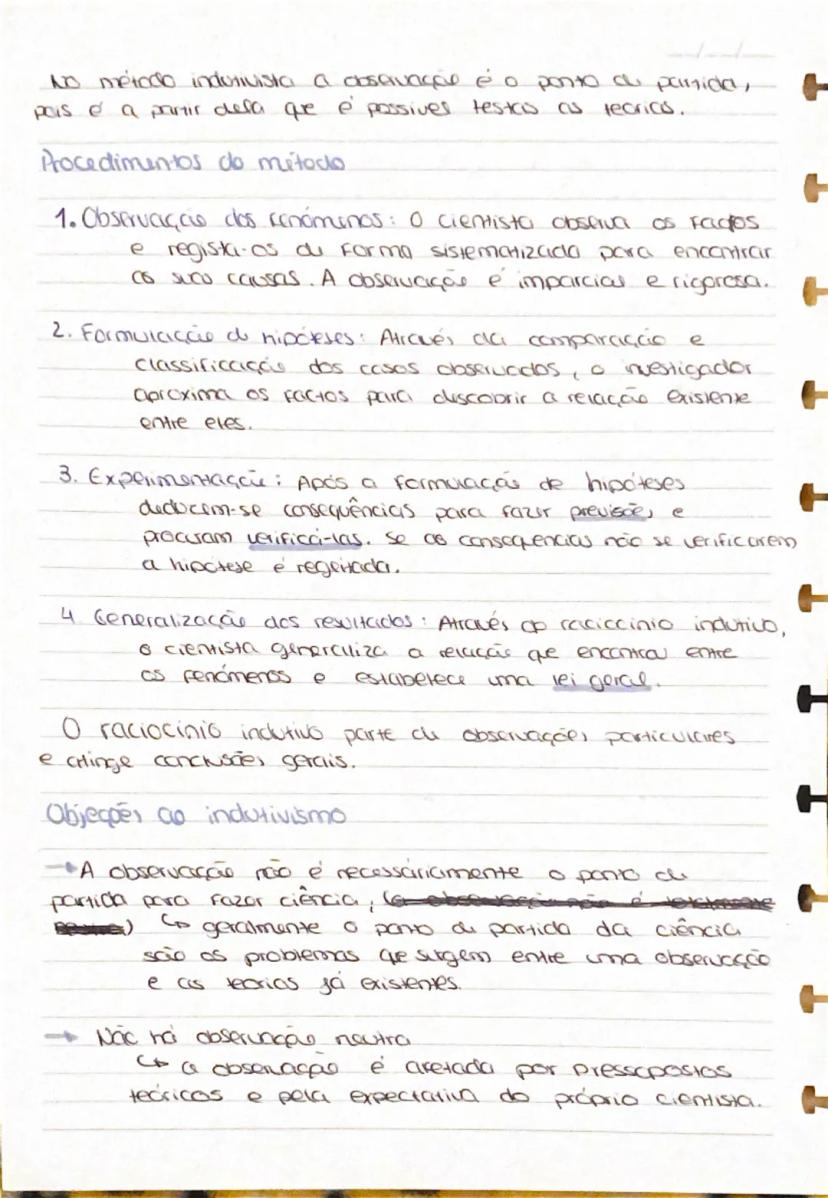 No método indutivista a observação é o ponto de partida,
pois é a partir dela que é possivel testar as teorias.
Procedimentos do método
1. Observação dos fenómenos: O cientista observa os factos
e regista-os de forma sistematizada para encontrar
as suas causas. A observação é imparcial e rigorosa.
2. Formulação de hipóteses: Através da comparação e
classificação dos casos observados, o investigador
aproxima os factos para descobrir a relação existente
entre eles.
3. Experimentação: Após a formulação de hipóteses
deduzem-se consequências para fazer previsões e
procuram verificá-las. Se as consequencias não se verificarem
a hipótese é regeitada.
4. Generalização dos resultados: Através do raciocínio indutivo,
o cientista generaliza a relação que encontrou entre
os fenómenos e estabelece uma lei geral.
O raciocínio indutivo parte de observações particulares
e atinge conclusões gerais.
Objeções ao indutivismo
→ A observação não é necessáriamente o ponto de
partida para fazer ciência,
↳ geralmente o ponto de partida da ciência
são os problemas que surgem entre uma observação
e as teorias já existentes.
→ Não há observação neutra
↳ a observação é afetada por pressupostos
teóricos e pela expectativa do próprio cientista.